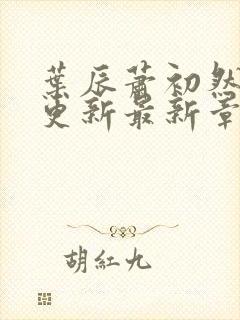 葉辰蕭初然
更新最新章
胡紅九